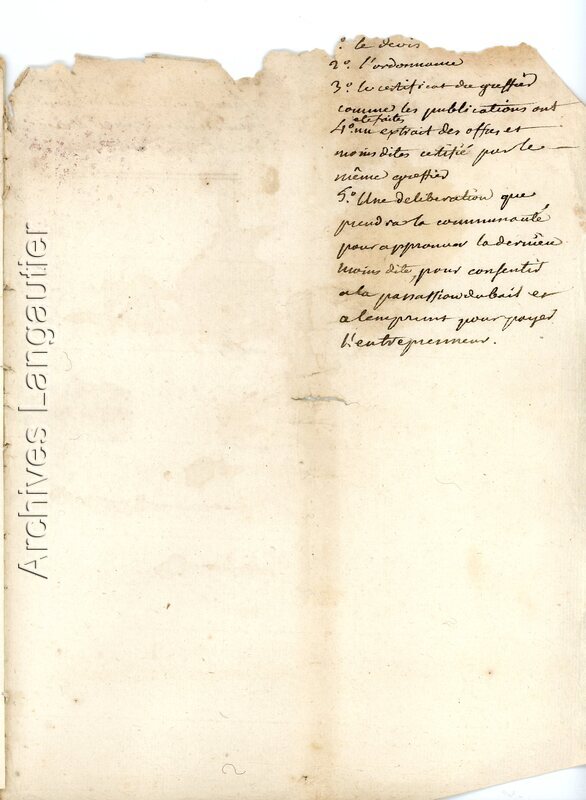 1.° le devis
2.° l'ordonnance
3.° le certificat du greffier
comme les publications ont
eté faites
4.° un extrait des offres et
moins dites certifié par le
même greffier
5.° Une deliberation que
prendra la communauté
pour approuver la derniere
moins dite, pour consentir
a la passation du bail et
a lemprunt pour payer
l'entrepreneur.
Archives Langautier